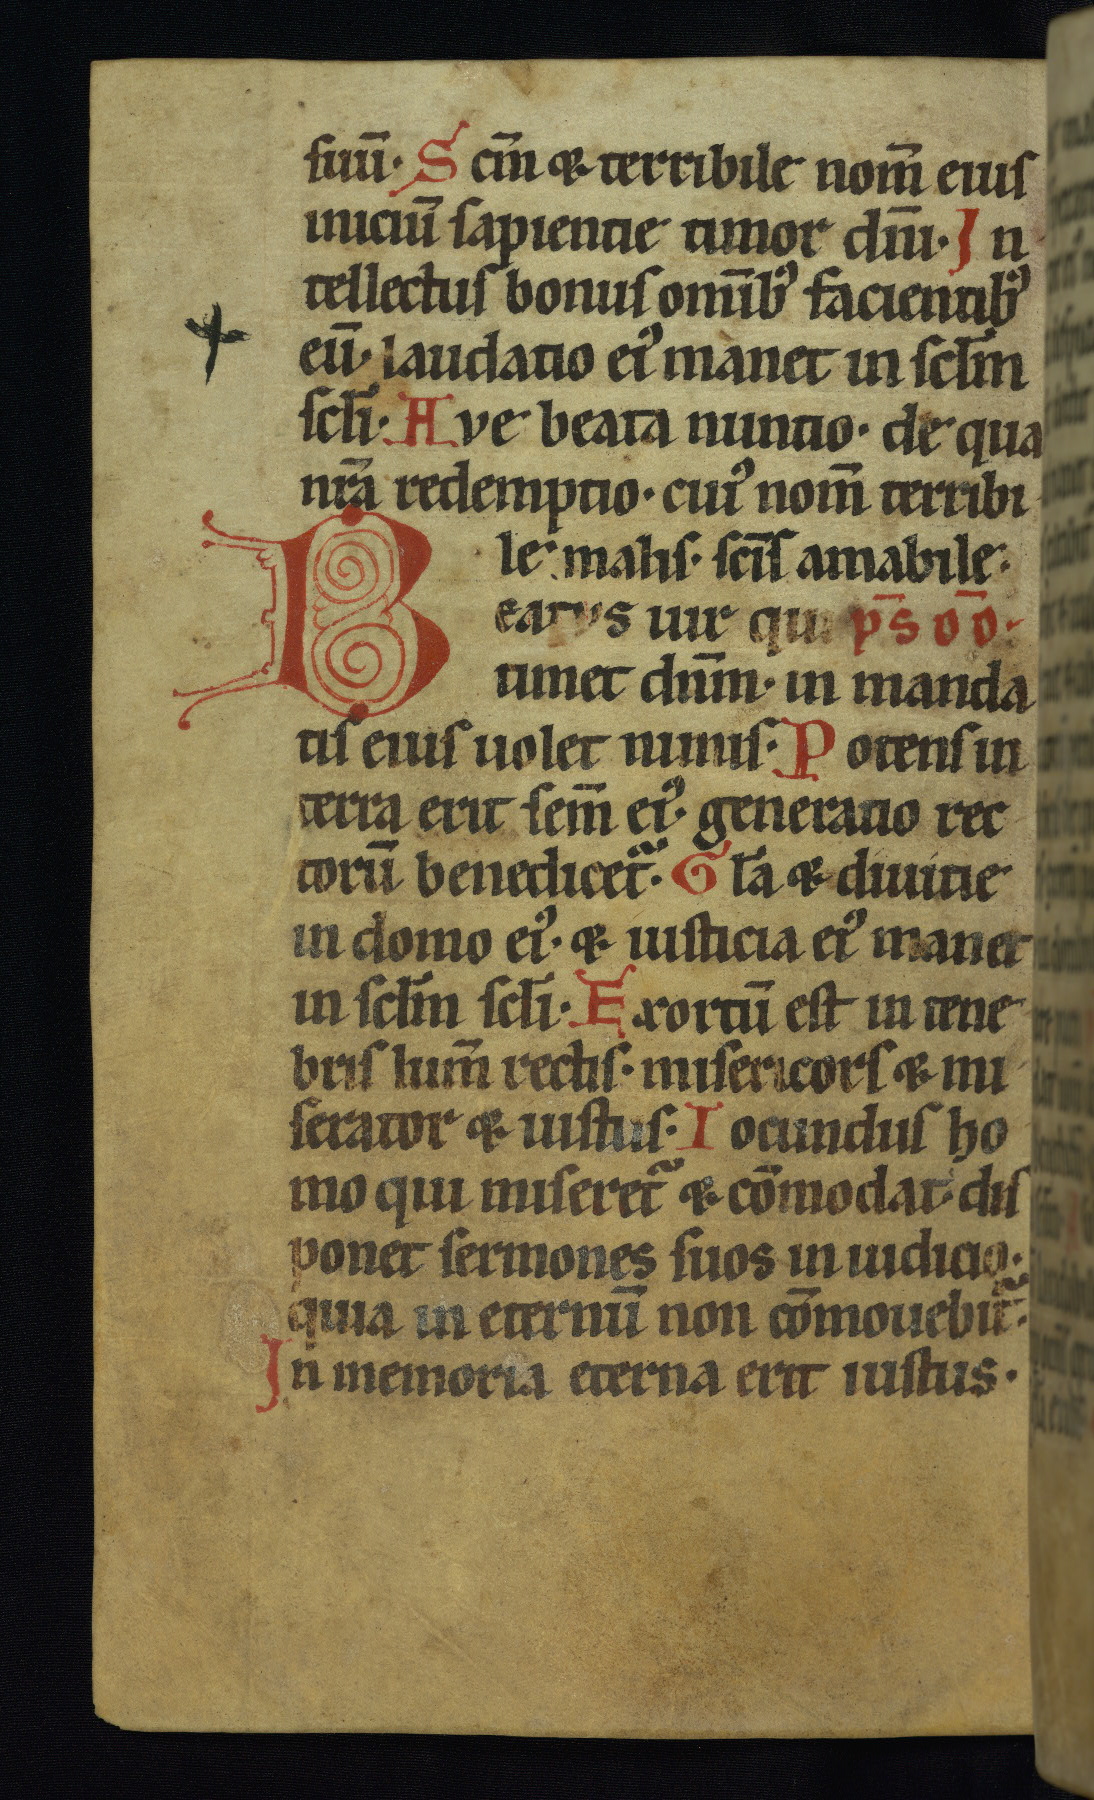 suū· S cm̄ ⁊ terribile nom̄ eius
iniciū sapientie timor dn̄i· I n
tellectus bonus om̄ib᷒ facientib᷒
eū· laudatio ei᷒ manet in scl̄m
scl̄i· A ve beata nuntio· de qua
nr̄a redemptio· cui᷒ nom̄ terribi
le malis· sc̄is amabile·
B eatus uir qui ps̄ dd̄·
timet dn̄m· in manda
tis eius uolet nimis· P otens in
terra erit sem̄ ei᷒· generatio rec
torū benedicet᷑· G lā ⁊ diuitie
in domo ei᷒· ⁊ iusticia ei᷒ manet
in scl̄m scl̄i· E xortū est in tene
bris lum̄ rectis· misericors ⁊ mi
serator ⁊ iustus· I ocundus ho
mo qui miseret᷑ ⁊ cōmodat dis
ponet sermones suos in iudicio·
quia in eternū non cōmouebit᷑·
I n memoria eterna erit iustus·